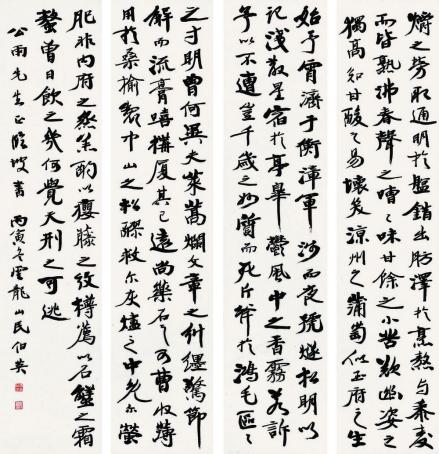 爝之勞取通明於盤錯出肪澤於烹熬與黍麥
而皆熟沸春聲之嘈嘈味甘餘之小苦歎幽姿之
獨高知甘酸之易壞笑涼州之蒲萄似玉府之生
始予宵濟于衡漳軍涉而夜號燧松明以
記淺散星宿於亭皋鬱風中之香霧若訴
予以不遭豈千歲之妙質而死斤斧於鴻毛區區
之寸明曾何異夫束蒿爛文章之糾纆驚節
解而流膏嘻構廈其已遠尚藥石之可曹收薄
用於桑榆製中山之松醪救爾灰燼之中免爾螢
肥非內府之烝羔酌以癭藤之紋樽薦以石蟹之霜
螯曾日飲之幾何覺天刑之可逃
公雨先生正 臨坡書 丙寅冬雲龍山民伯英